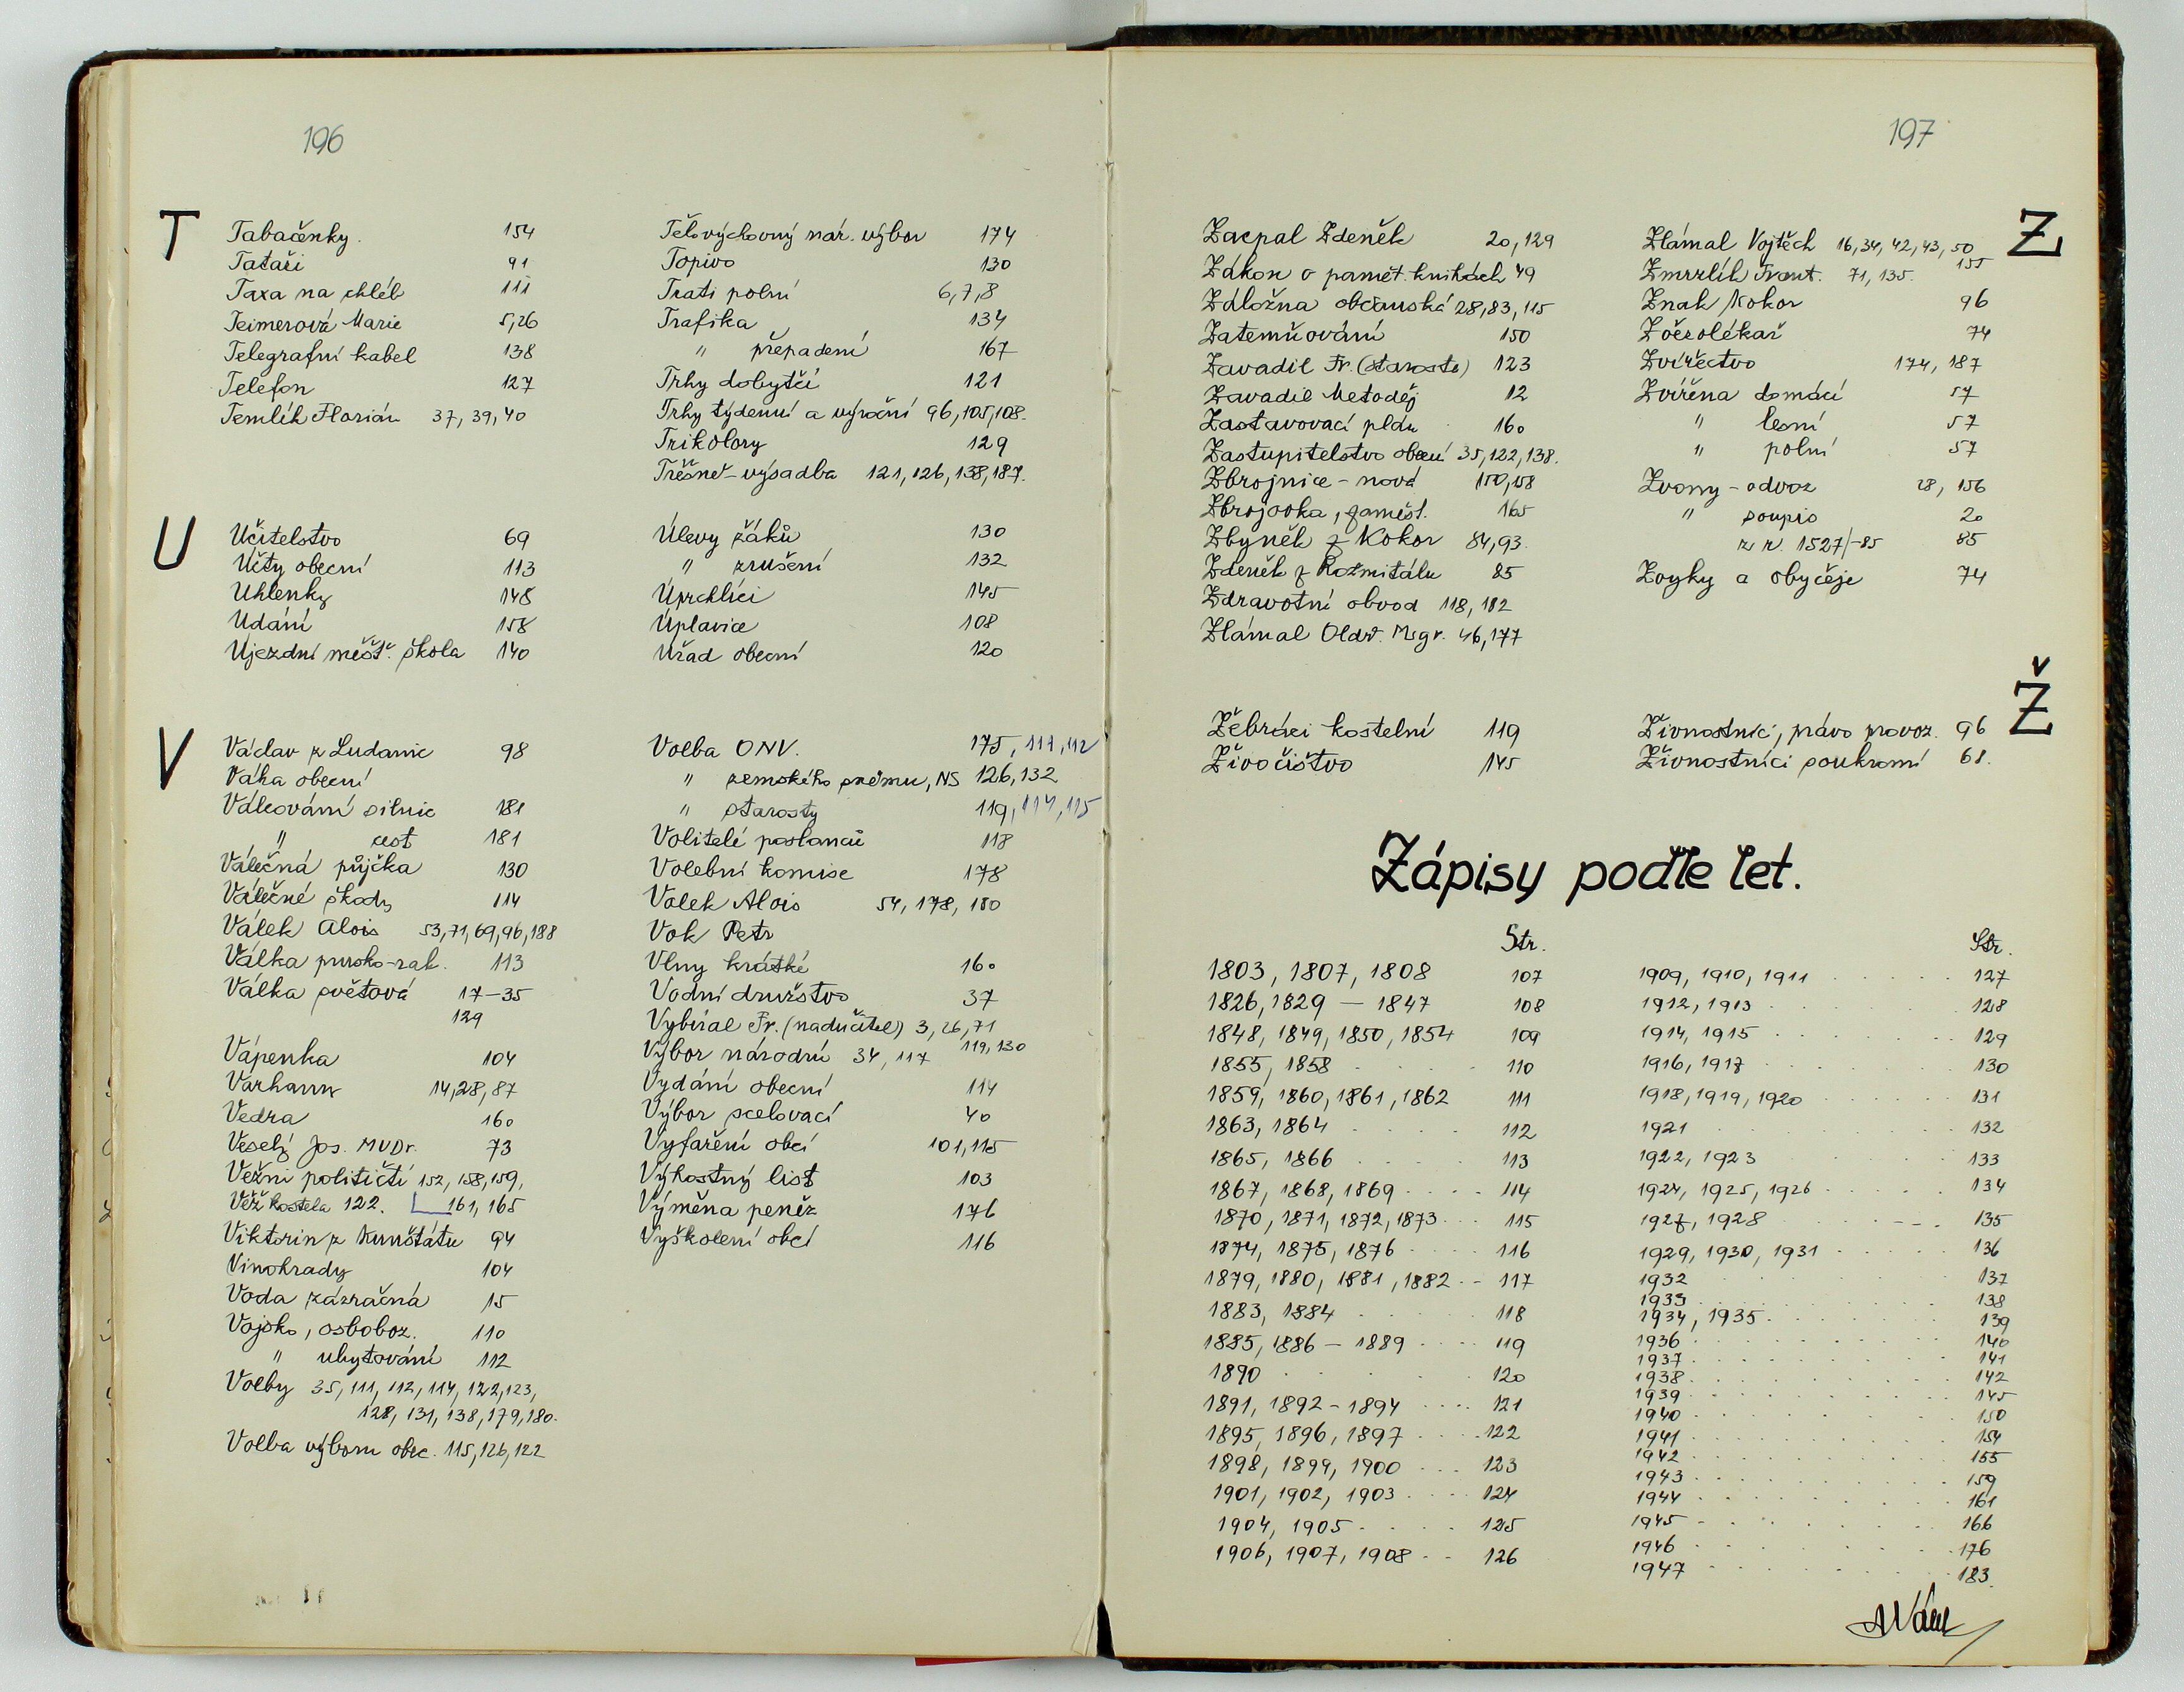 196
T
Tabačenky. 154
Tataři 91
Taxa na chléb 111
Teimerová Marie 5,26
Telegrafní kabel 138
Telefon 127
Temlík Florián 37, 39, 40
Tělovýchovný nár. výbor 174
Topivo 130
Trati polní 6,7,8
Trafika 134
" přepadení 167
Trhy dobytčí 121
Trhy týdenní a výroční 96,105,108.
Trikolory 129
Třešně-výsadba 121,126,138,187.
U
Učitelstvo 69
Účty obecní 113
Uhlenky 148
Udání 158
Újezdní měšť. škola 140
Úlevy žáků 130
" zrušení 132
Uprchlíci 145
Úplavice 108
Úřad obecní 120
V
Václav z Ludanic 98
Váha obecní
Válcování silnic 181
" cest 181
Válečná půjčka 130
Válečné škody 114
Válek Alois 53,71,69,96,188
Válka prusko-rak. 113
Válka světová 17-35
129
Vápenka 104
Varhany 14,28,87
Vedra 160
Veselý Jos. MVDr. 73
Vězni političtí 152, 158,159,
Věž kostela 122. 161, 165
Viktorin z Kunštátu 94
Vinohrady 104
Voda zázračná 15
Vojsko, osvoboz. 110
" ubytování 112
Volby 35, 111, 112, 114, 122,123,
128, 131, 138,179,180.
Volba výboru obec. 115,126,122
Volba ONV. 175, 111,112
" zemského sněmu, NS 126,132
" starosty 119,114,115
Volitelé poslanců 118
Volební komise 178
Volek Alois 54, 178, 180
Vok Petr
Vlny krátké 160
Vodní družstvo 37
Vybíral Fr. (nadučitel) 3, 26,71
119,130
Výbor národní 34, 117
Vydání obecní 114
Výbor scelovací 40
Vyfaření obcí 101,115
Výhostný list 103
Výměna peněz 176
Vyškolení obcí 116
197
Z
Zacpal Zdeněk 20,129
Zákon o pamět. knihách 49
Záložna občanská 28,83,115
Zatemňování 150
Zavadil Fr. (starosta) 123
Zavadil Metoděj 12
Zastavovací pláu 160
Zastupitelstvo obecní 35,122,138.
Zbrojnice - nová 150,158
Zbrojovka, zaměst. 165
Zbyněk z Kokor 84,93
Zdeněk z Rožmitálu 85
Zdravotní obvod 118, 182
Zlámal Oldř. Msgr. 46,177
Zlámal Vojtěch 16,34,42,43,50
155
Zmrzlík Frant. 71, 135.
Znak Kokor 96
Zvěrolékař 74
Zvířectvo 174, 187
Zvířena domácí 57
" lesní 57
" polní 57
Zvony - odvoz 28, 156
" soupis 20
z r. 1527/-85 85
Zvyky a obyčeje 74
Ž
Žebráci kostelní 119
Živočištvo 145
Živnostníci, právo provoz. 96
Živnostníci soukromí 68.
Zápisy podle let.
Str.
1803, 1807, 1808 107
1826, 1829 — 1847 108
1848, 1849, 1850, 1854 109
1855, 1858 110
1859, 1860, 1861, 1862 111
1863, 1864 112
1865, 1866 113
1867, 1868, 1869 114
1870, 1871, 1872, 1873 115
1874, 1875, 1876 116
1879, 1880, 1881, 1882 117
1883, 1884 118
1885, 1886 — 1889 119
1890 120
1891, 1892 - 1894 121
1895, 1896, 1897 122
1898, 1899, 1900 123
1901, 1902, 1903 124
1904, 1905 125
1906, 1907, 1908 126
Str.
1909, 1910, 1911 127
1912, 1913 128
1914, 1915 129
1916, 1917 130
1918, 1919, 1920 131
1921 132
1922, 1923 133
1924, 1925, 1926 134
1927, 1928 135
1929, 1930, 1931 136
1932 137
1933 138
1934, 1935 139
1936 140
1937 141
1938 142
1939 145
1940 150
1941 154
1942 155
1943 159
1944 161
1945 166
1946 176
1947 183.